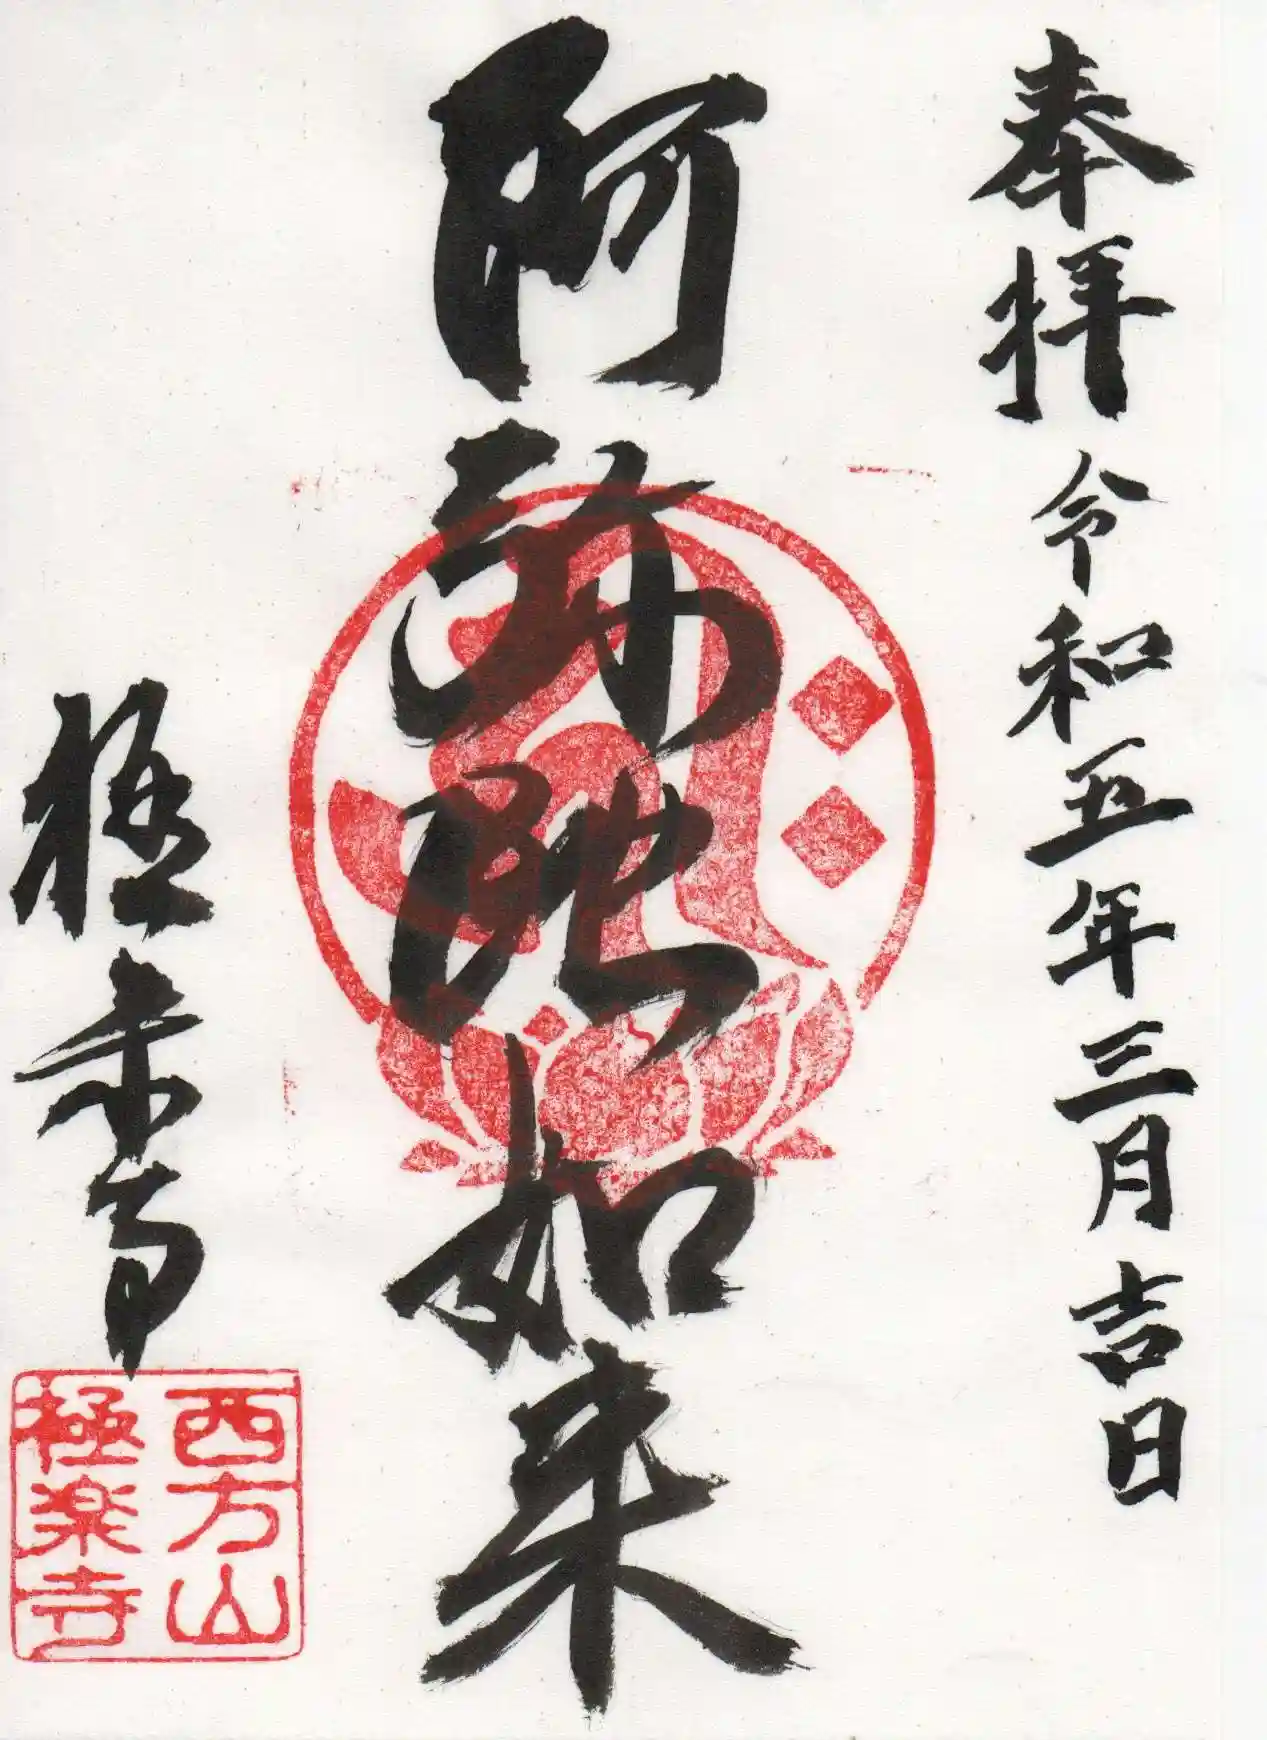 奉拝 令和五年三月吉日
阿弥陀如来
極楽寺
西方山
極楽寺